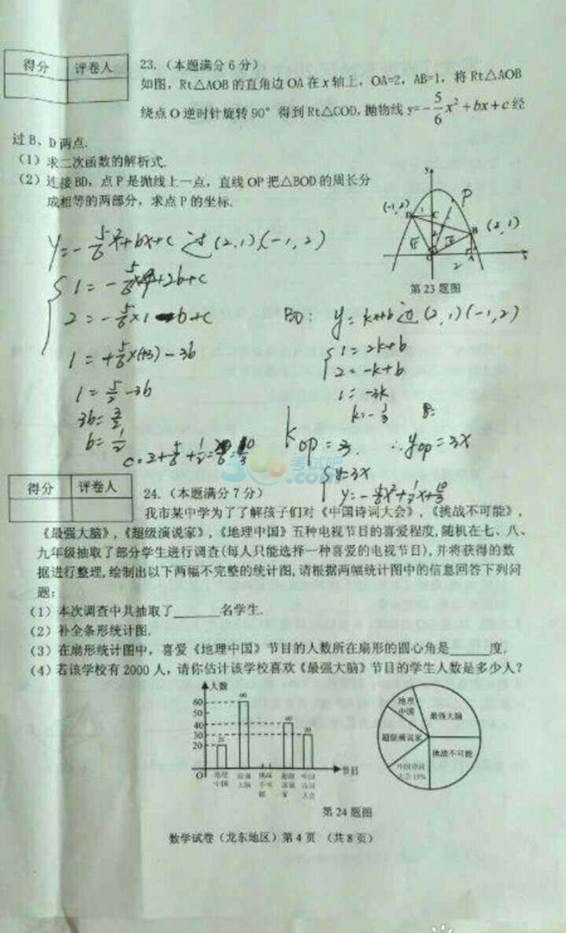 得分 评卷人
23.（本题满分6分）
如图，Rt△AOB的直角边OA在x轴上，OA=2，AB=1，将Rt△AOB
绕点O逆时针旋转90°得到Rt△COD，抛物线y=-5/6x²+bx+c经
过B、D两点.
（1）求二次函数的解析式.
（2）连接BD，点P是抛线上一点，直线OP把△BOD的周长分
成相等的两部分，求点P的坐标.
y=-5/6x²+bx+c 过(2,1)(-1,2)
2=-5/6×1-b+c
1=5/2-3b
3b=3/2
b=1/2
y=kx+b过(2,1)(-1,2)
1=2k+b
2=-k+b
1=-3k
k=-1/3
kop=3 ∴yop=3x
y=3x
y
P
(-1,2)
(2,1)
x
2
第23题图
得分 评卷人
24.（本题满分7分）
我市某中学为了了解孩子们对《中国诗词大会》，《挑战不可能》，
《最强大脑》，《超级演说家》，《地理中国》五种电视节目的喜爱程度，随机在七、八、
九年级抽取了部分学生进行调查(每人只能选择一种喜爱的电视节目)，并将获得的数
据进行整理，绘制出以下两幅不完整的统计图，请根据两幅统计图中的信息回答下列问
题：
（1）本次调查中共抽取了______名学生.
（2）补全条形统计图.
（3）在扇形统计图中，喜爱《地理中国》节目的人数所在扇形的圆心角是______度.
（4）若该学校有2000人，请你估计该学校喜欢《最强大脑》节目的学生人数是多少人？
人数
60
50
40
30
20
O
20
60
40
30
地理中国
最强大脑
挑战不可能
超级演说家
中国诗词大会
节目
地理中国
最强大脑
超级演说家
挑战不可能
中国诗词大会
第24题图
数学试卷（龙东地区）第4页 （共8页）